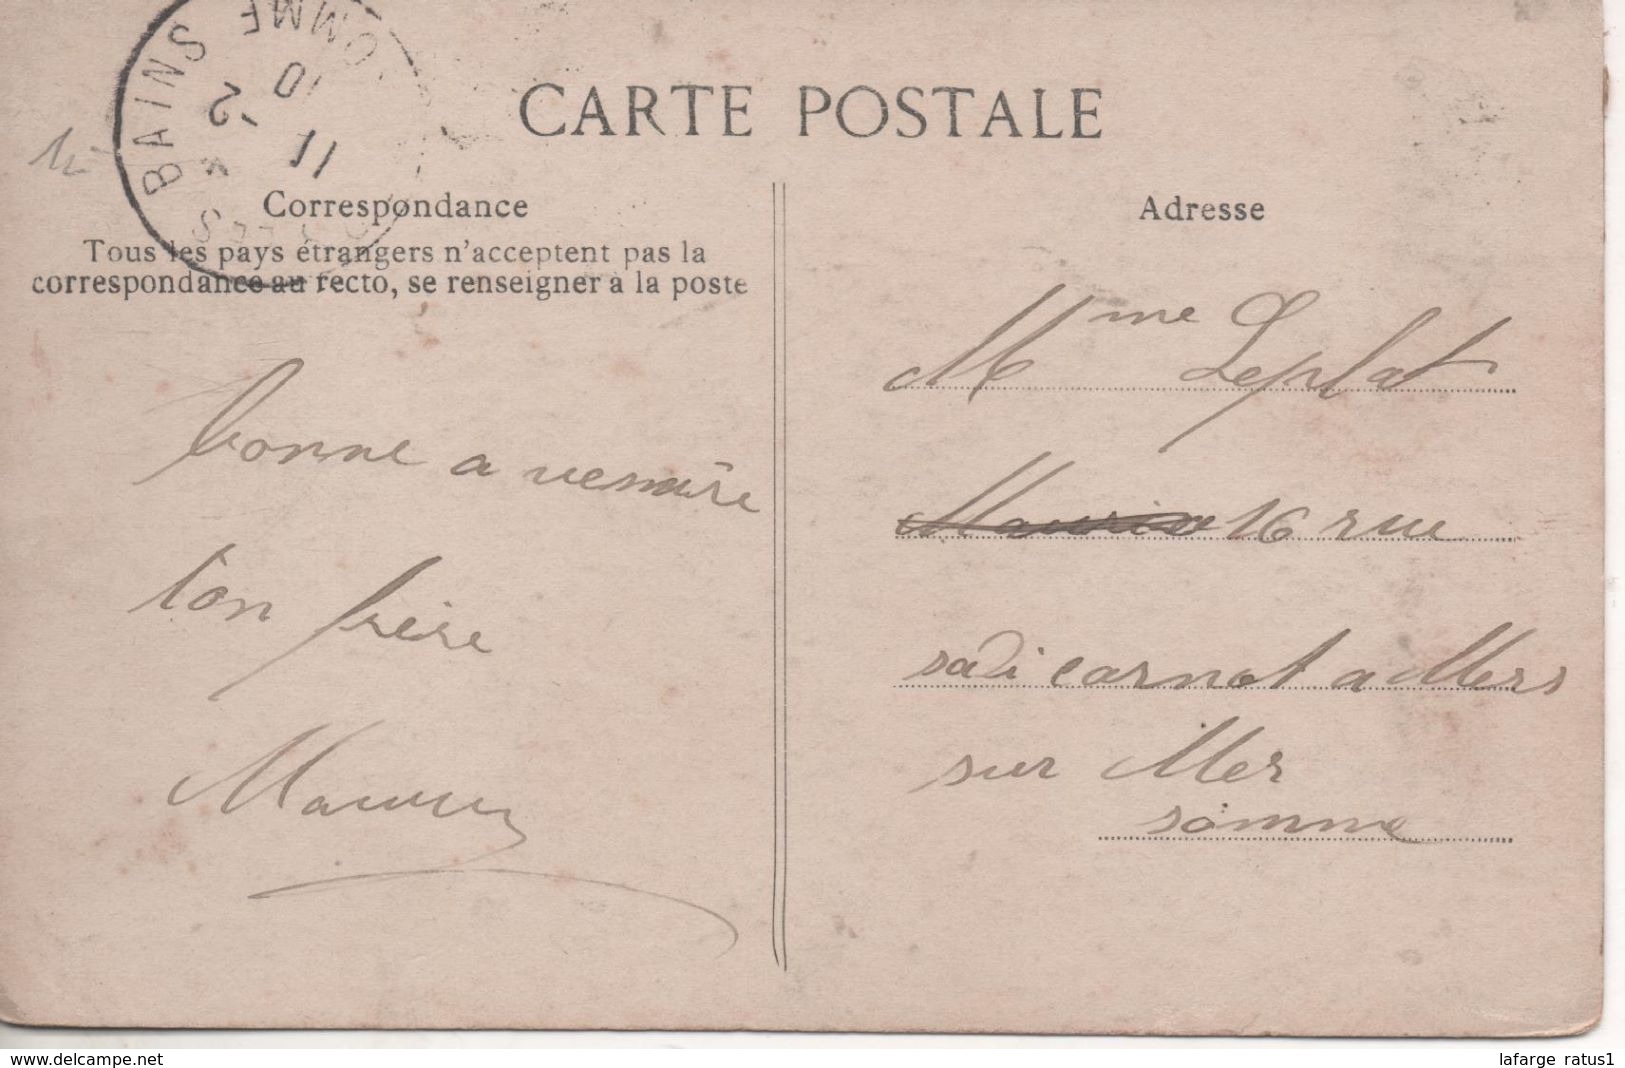 BAINS
OMME
2
10
11
12
CARTE POSTALE
Correspondance
Tous les pays étrangers n'acceptent pas la
correspondance au recto, se renseigner à la poste
bonne a
ton frère
Adresse
Mme Leplat
Maurice 16 rue
sadi carnot a Mers
sur Mer
somme
www.delcampe.net
lafarge ratus1